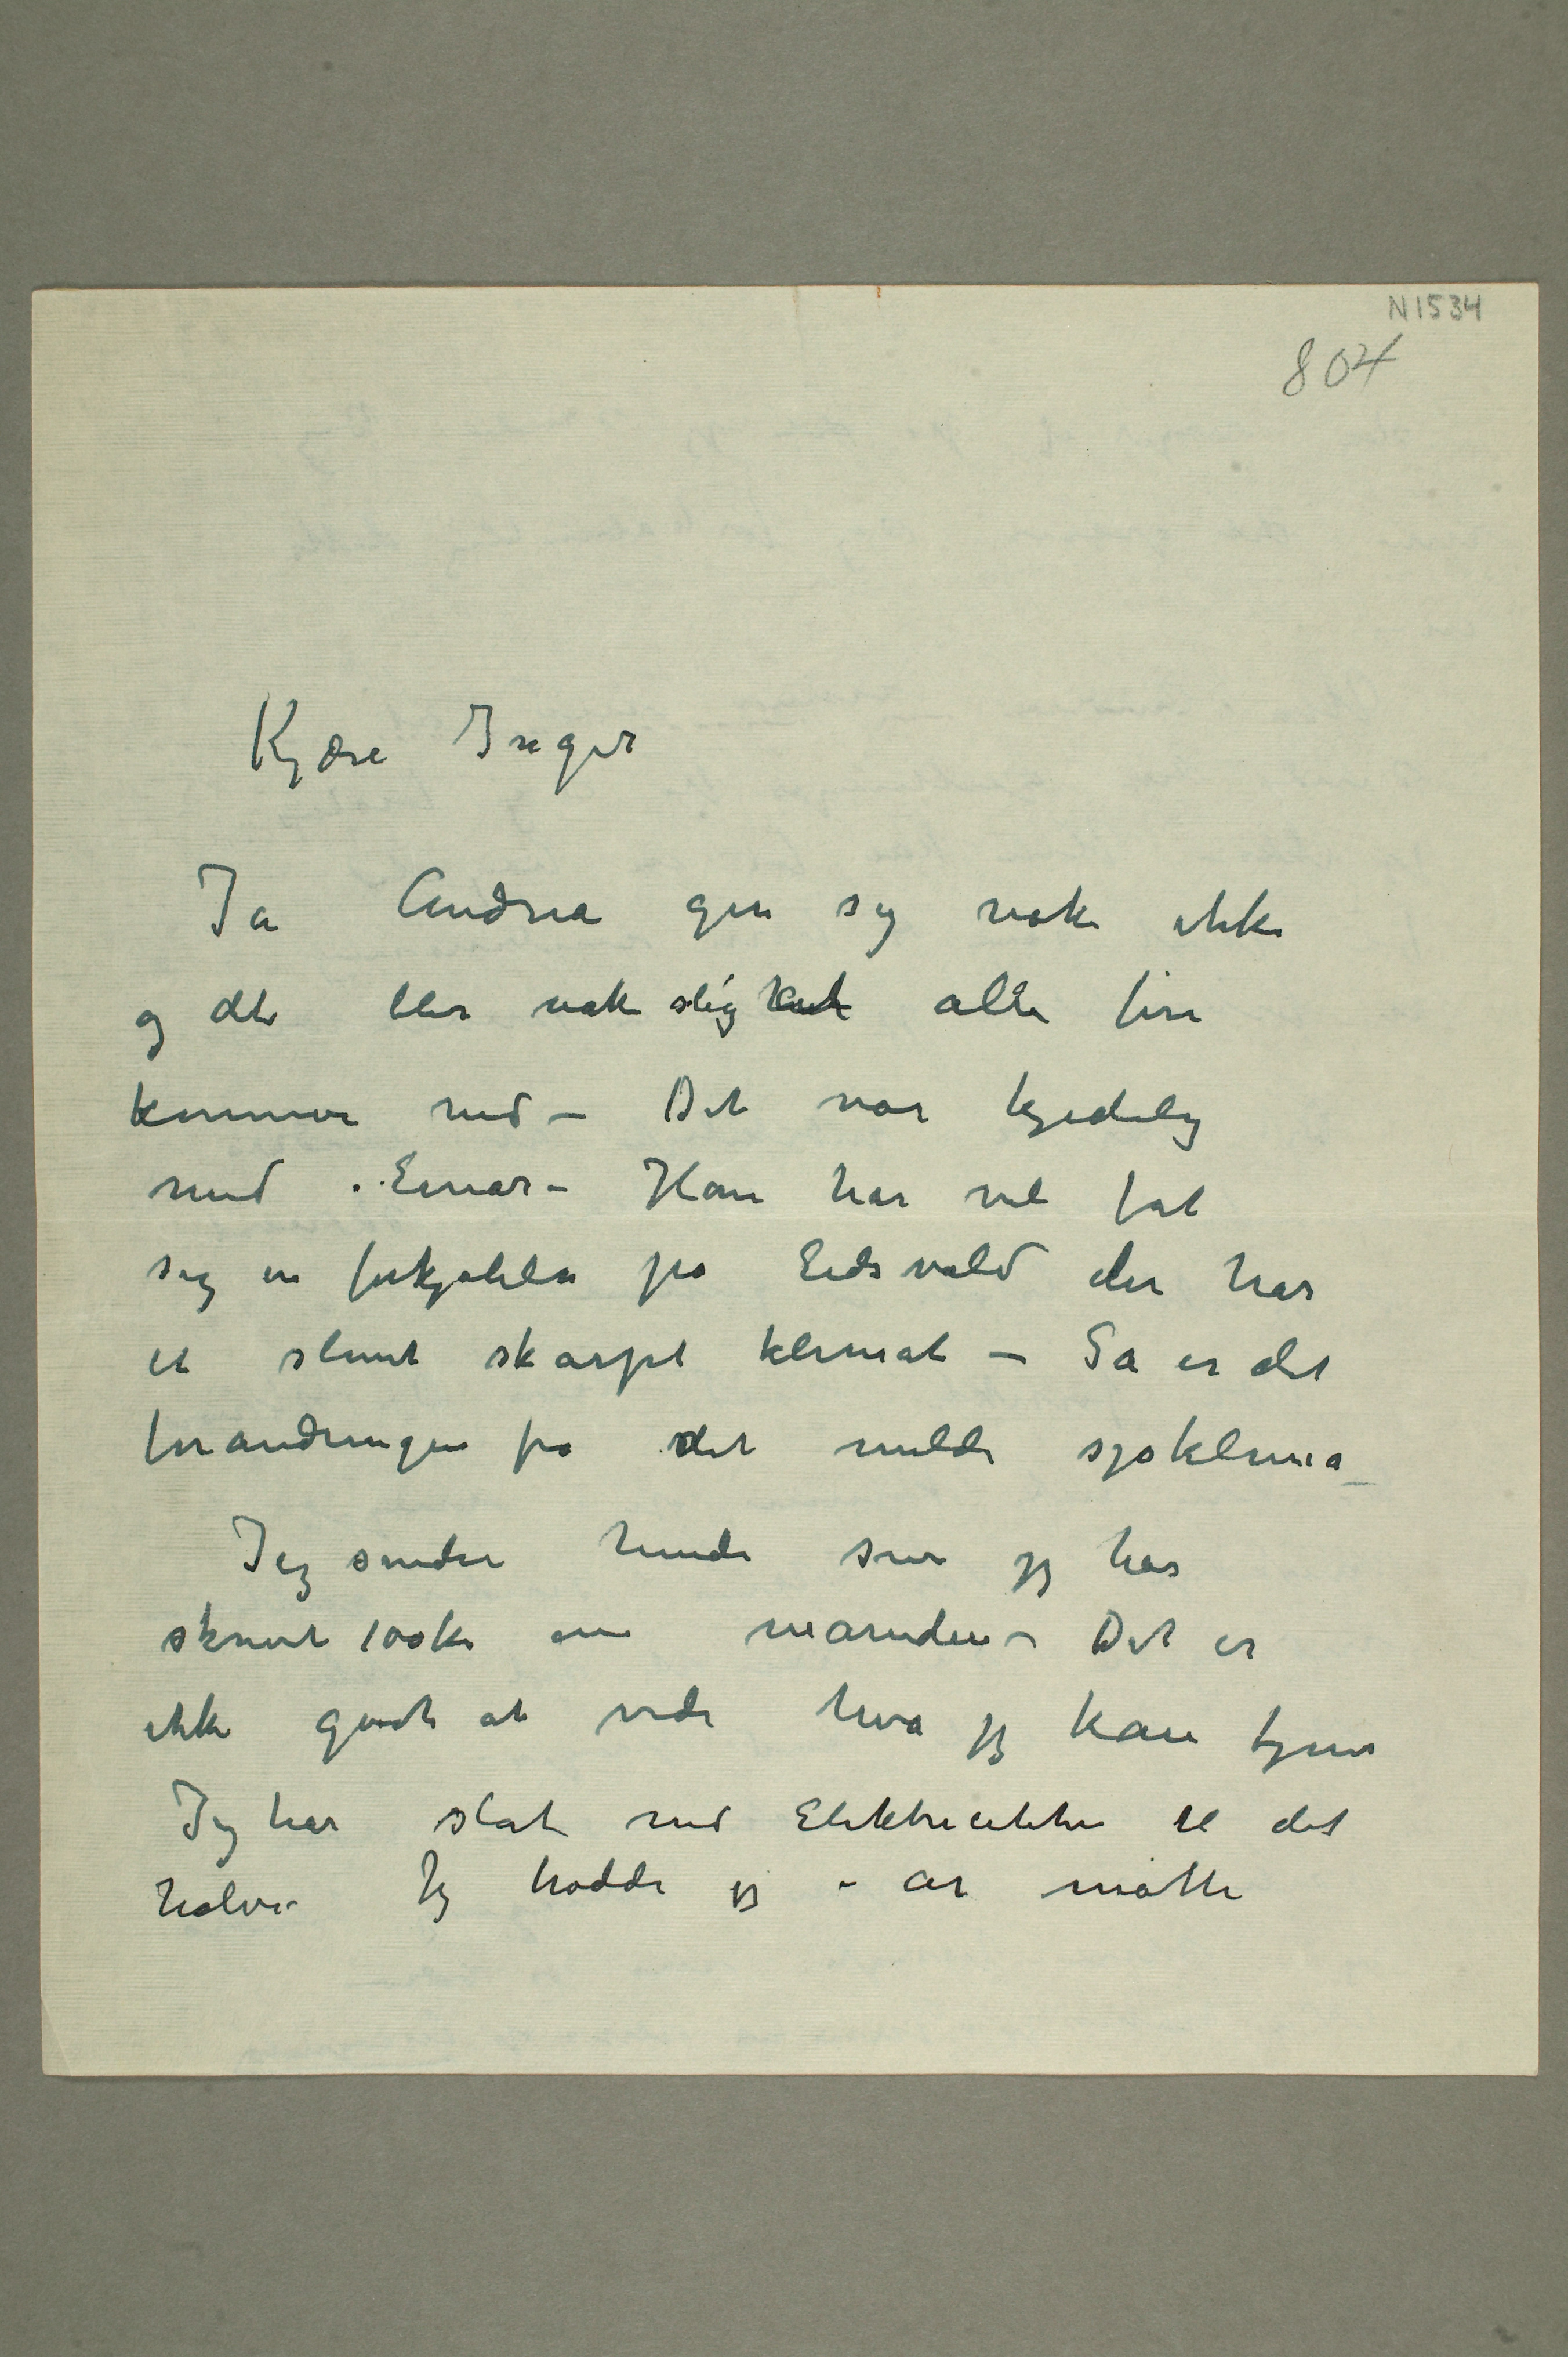 N1534
804
Kjære Inger
Ja Andrea gir sig nok ikke
og det blir nok slig at alle fire
kommer ned – Det var kjedelig
med Einar – Han har vel fåt
sig en forkjølelse på Eidsvold der har
et slemt skarpt klimat – Så er det
forandringen fra det milde sjøklima –
Jeg sender hende som jeg har
skrevet 100 kr om måneden – Det er
ikke godt at vide hva jeg kan tjene
Jeg har slåt ned Elektriciteten til det
halve – Jeg trodde jeg i år måtte